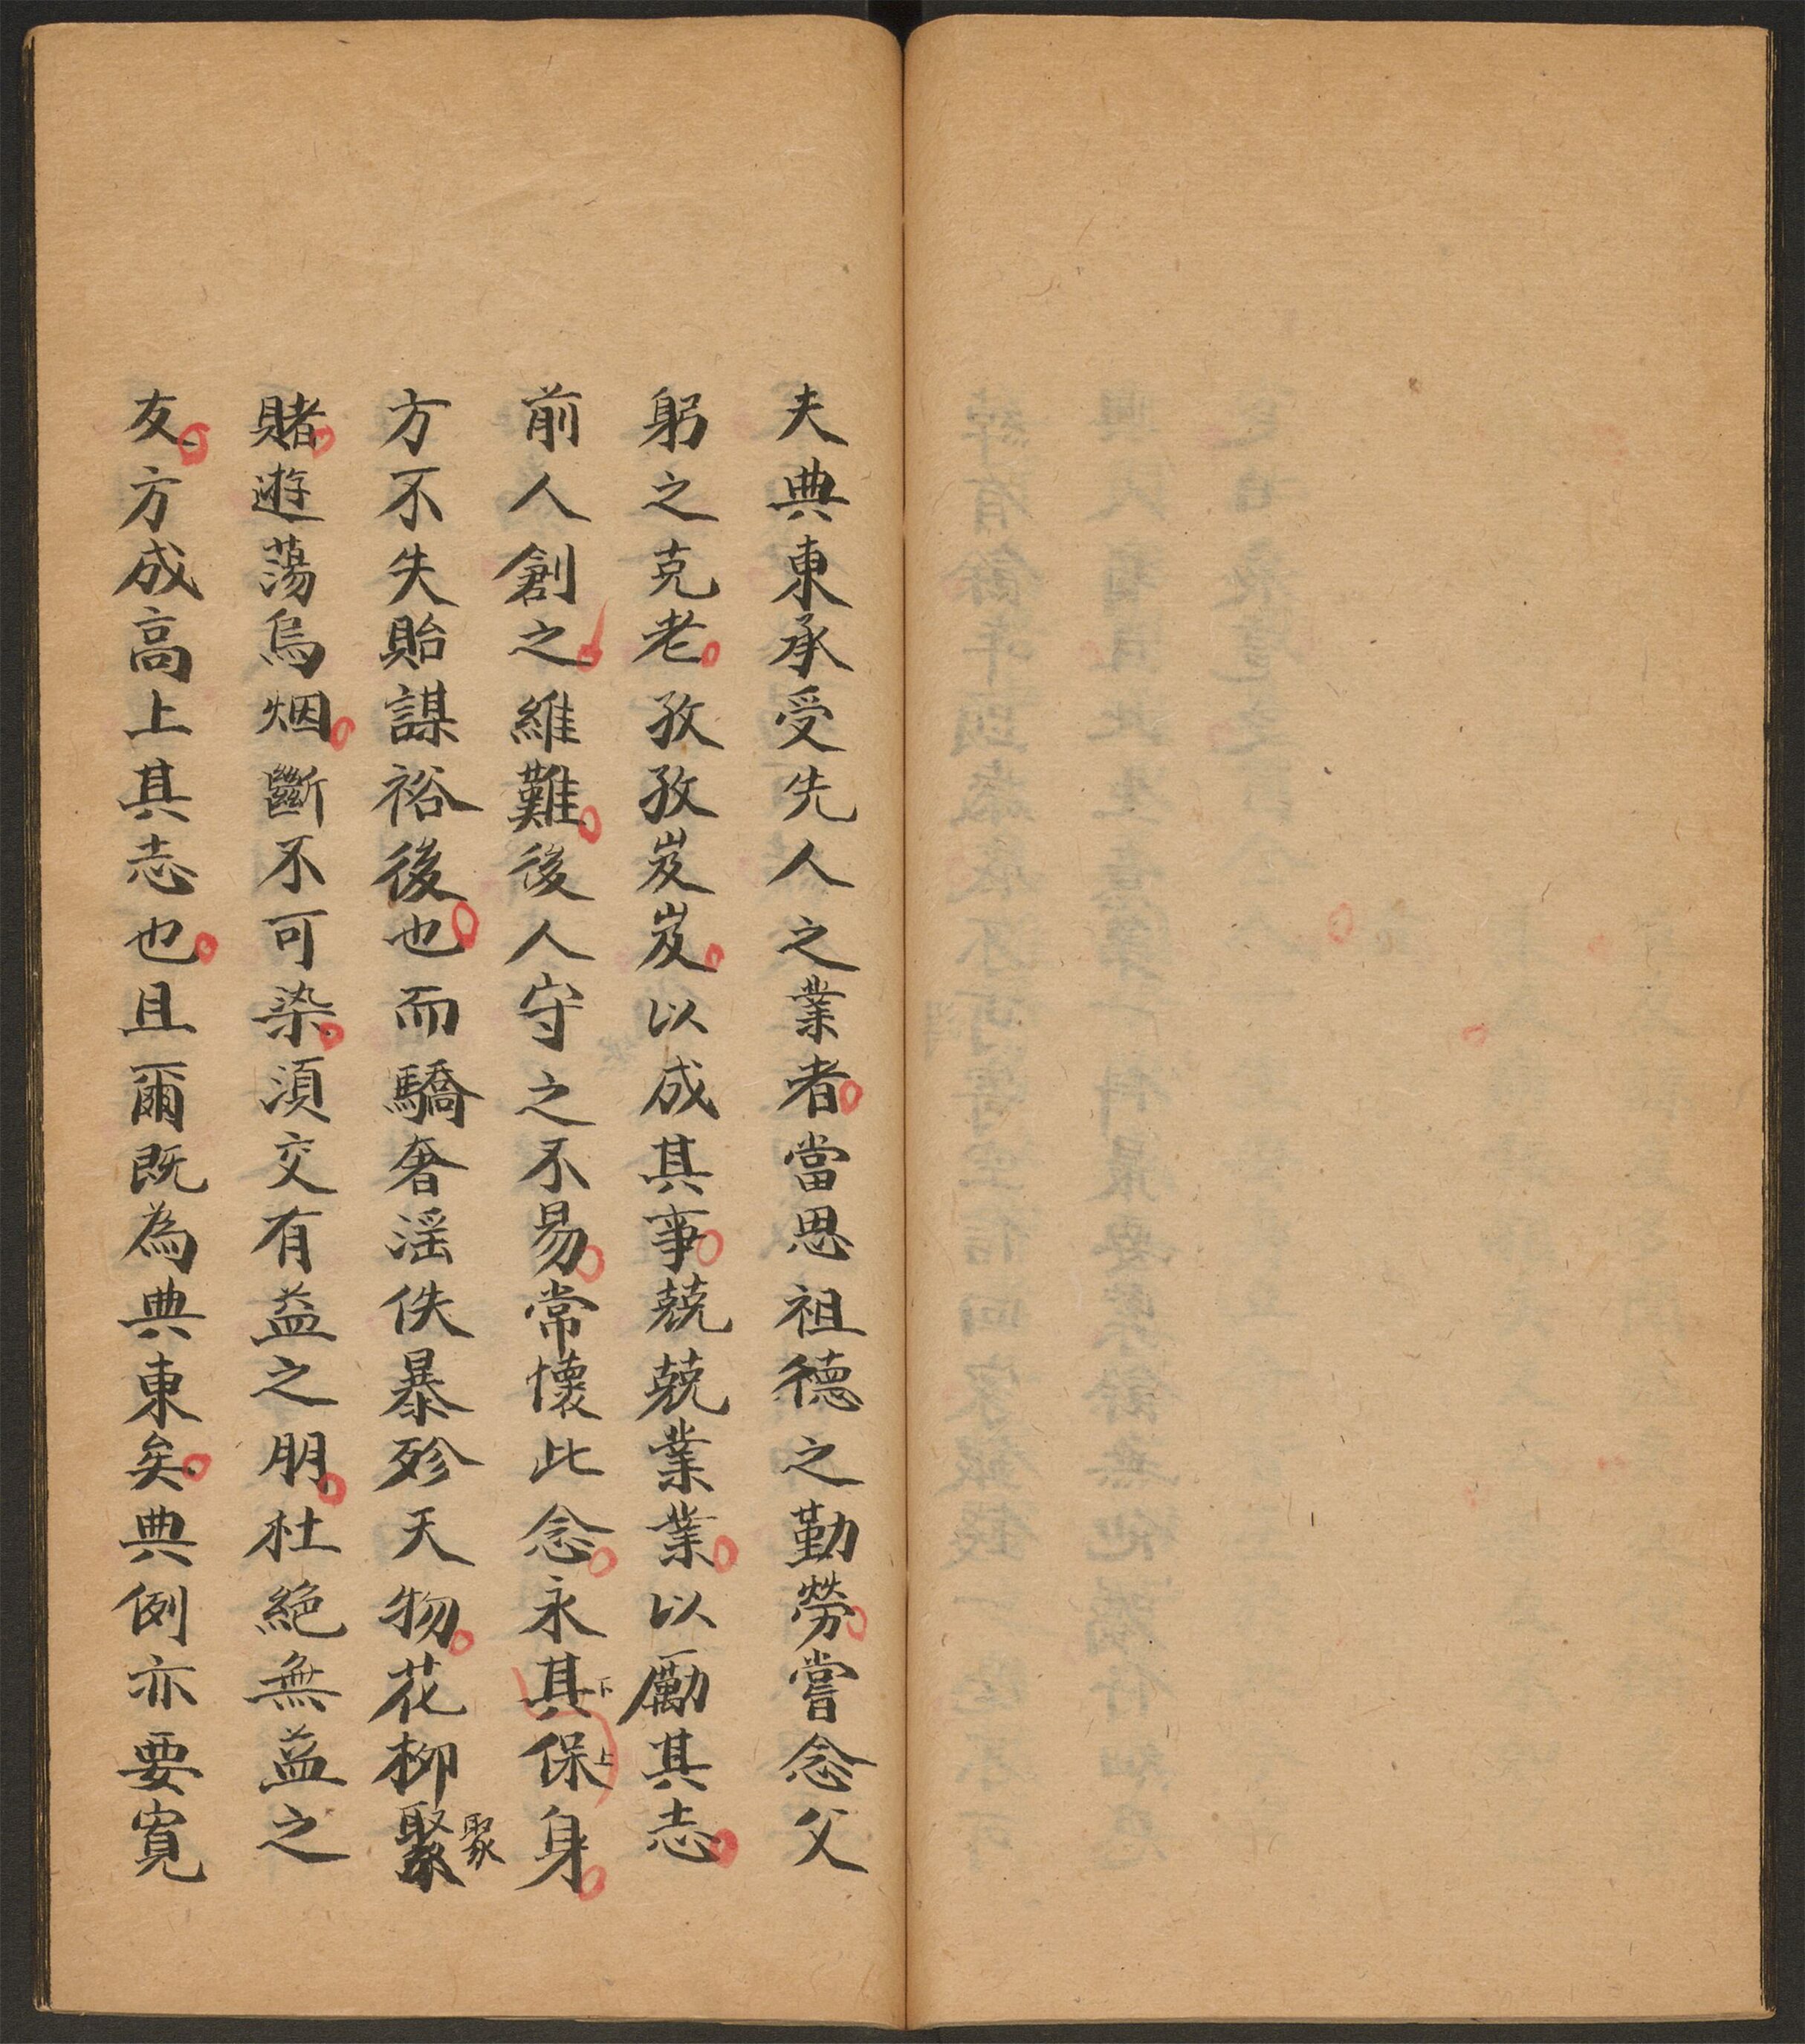 夫典東承受先人之業者當思祖德之勤勞嘗念父
躬之克老孜孜岌岌以成其事兢兢業業以勵其志
前人創之維難後人守之不易常懷此念永其保身
下上
方不失貽謀裕後也而驕奢滛佚暴殄天物花柳聚
聚
賭遊蕩烏烟斷不可染湏交有益之朋杜絕無益之
友方成高上其志也且爾既為典東矣典例亦要寬